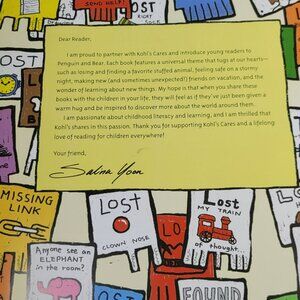 LOST
SEND HELP!
LOST
RIGHT
SOCK
Dear Reader,
I am proud to partner with Kohl's Cares and introduce young readers to
Penguin and Bear. Each book features a universal theme that tugs at our hearts—
such as losing and finding a favorite stuffed animal, feeling safe on a stormy
night, making new (and sometimes unexpected!) friends on vacation, and the
wonder of learning about new things. My hope is that when you share these
books with the children in your life, they will feel as if they've just been given a
warm hug and be inspired to discover more about the world around them.
I am passionate about childhood literacy and learning, and I am thrilled that
Kohl's shares in this passion. Thank you for supporting Kohl's Cares and a lifelong
love of reading for children everywhere!
Your friend,
Salina Yoon
MISSING
LINK
LOST
CLOWN NOSE
LO
Lost
MY TRAIN
of thought..
Anyone see an
ELEPHANT
in the room?
LOST
FOUND